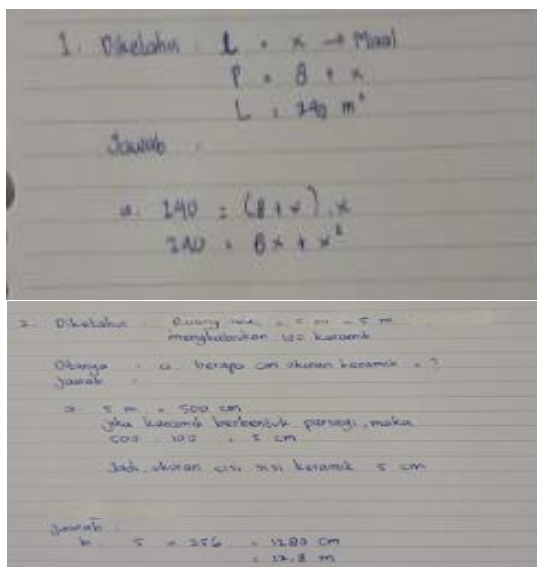 1. Diketahui : L = x → Misal
P = 8 + x
L = 240 m²
Jawab :
a. 240 = (8 + x) . x
240 = 8x + x²
2. Diketahui : Ruang 5 m 5 m
menghabiskan 100 keramik
Ditanya : a. berapa cm ukuran keramik = ?
Jawab :
a. 5 m = 500 cm
jika keramik berbentuk persegi, maka
500 : 100 = 5 cm
Jadi, ukuran sisi keramik 5 cm
Jawab :
b. 5 × 256 = 1280 cm
= 12,8 m